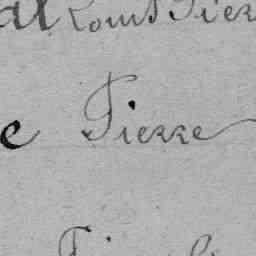 al Louis Pier
e Pierre